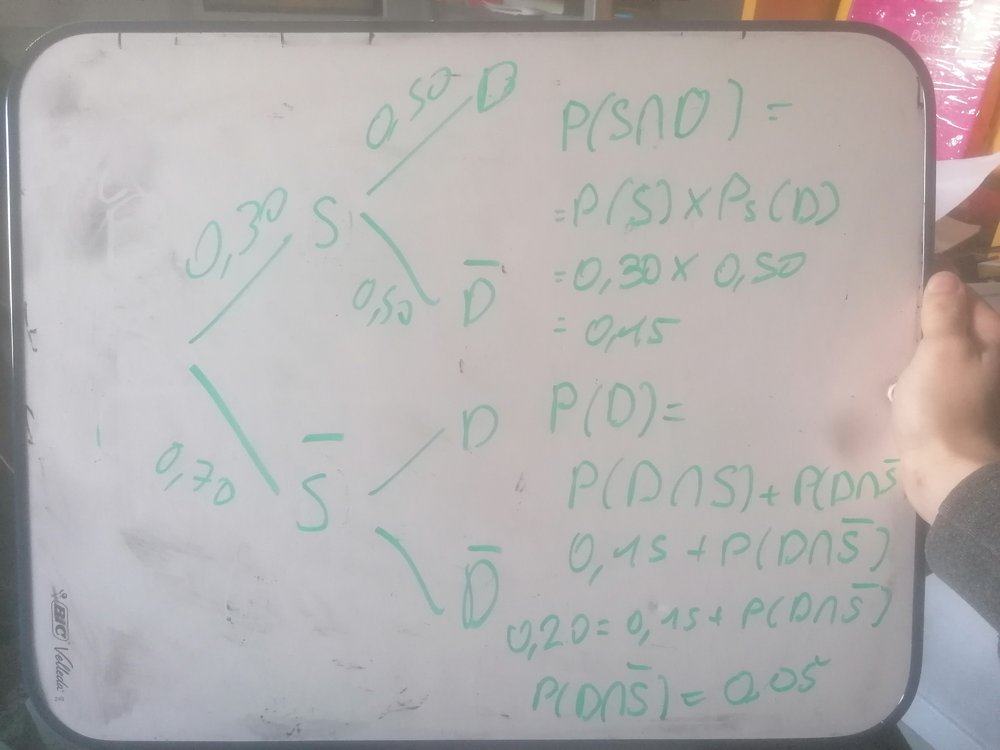 0,50 D
0,30 S
0,50 D̅
0,70 S̅
D
D̅
P(S∩D) =
=P(S)×Ps(D)
=0,30×0,50
=0,15
P(D)=
P(D∩S)+P(D∩S̅
0,15+P(D∩S̅)
0,20=0,15+P(D∩S̅)
P(D∩S̅)=0,05
BIC Velleda